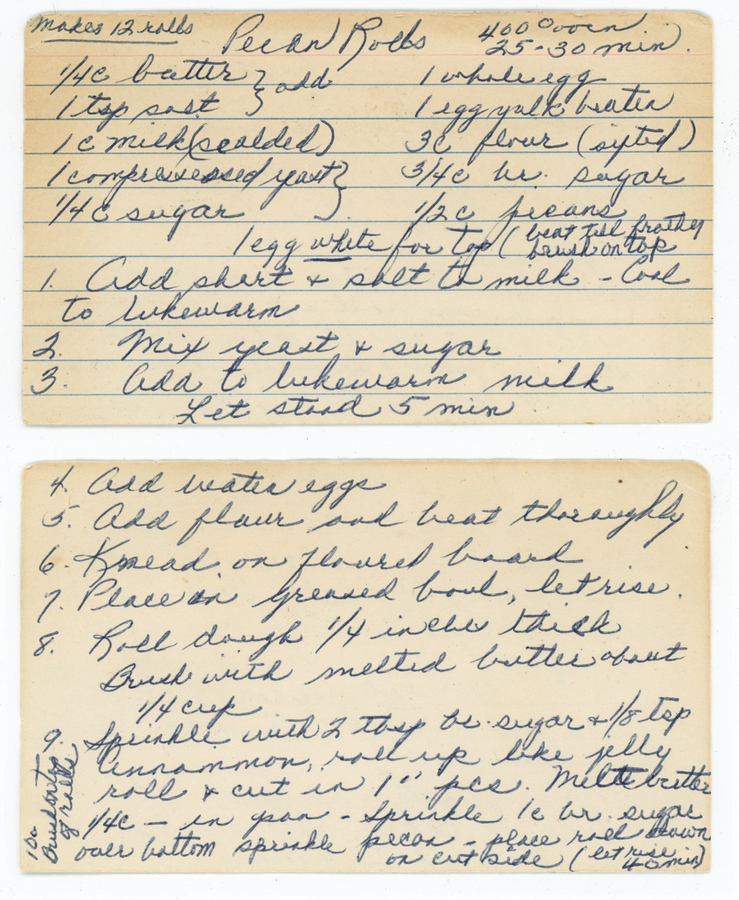 Makes 12 rolls Pecan Rolls 400° oven
25-30 min.
1/4 c butter } add 1 whole egg
1 tsp salt 1 egg yolk beaten
1 c milk (scalded) 3 c flour (sifted)
1 compressed yeast } 3/4 c br. sugar
1/4 c sugar 1/2 c pecans
1 egg white for top (beat till frothy
brush on top
1. Add short & salt to milk - Cool
to lukewarm
2. Mix yeast & sugar
3. Add to lukewarm milk
Let stand 5 min.
4. Add beaten eggs
5. Add flour and beat thoroughly
6. Knead on floured board
7. Place in greased bowl, let rise.
8. Roll dough 1/4 inches thick
Brush with melted butter about
1/4 cup
9. Sprinkle with 2 tbsp br. sugar & 1/8 tsp
Cinnammon, roll up like jelly
roll & cut in 1" pcs. Melt butter
1/4 c - in pan - Sprinkle 1c br. sugar
over bottom sprinkle pecan - place roll down
on cut side (let rise
40 min)
Brush on top
of rolls